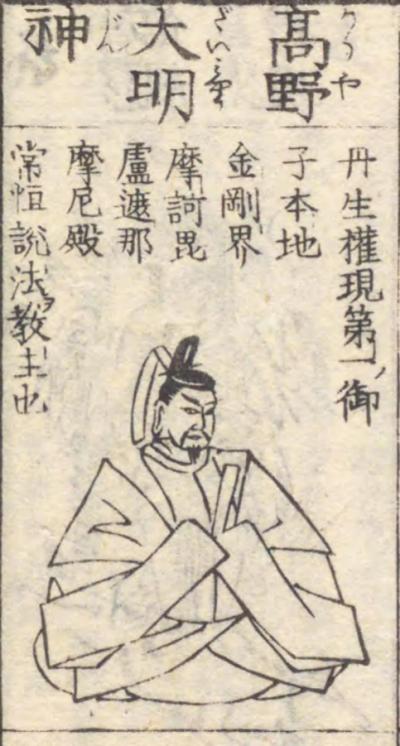 髙野
かうや
大明
だいみやう
神
じん
丹生権現第一ノ御
子本地
金剛界
摩訶毘
盧遮那
摩尼殿
常恒説法教主也